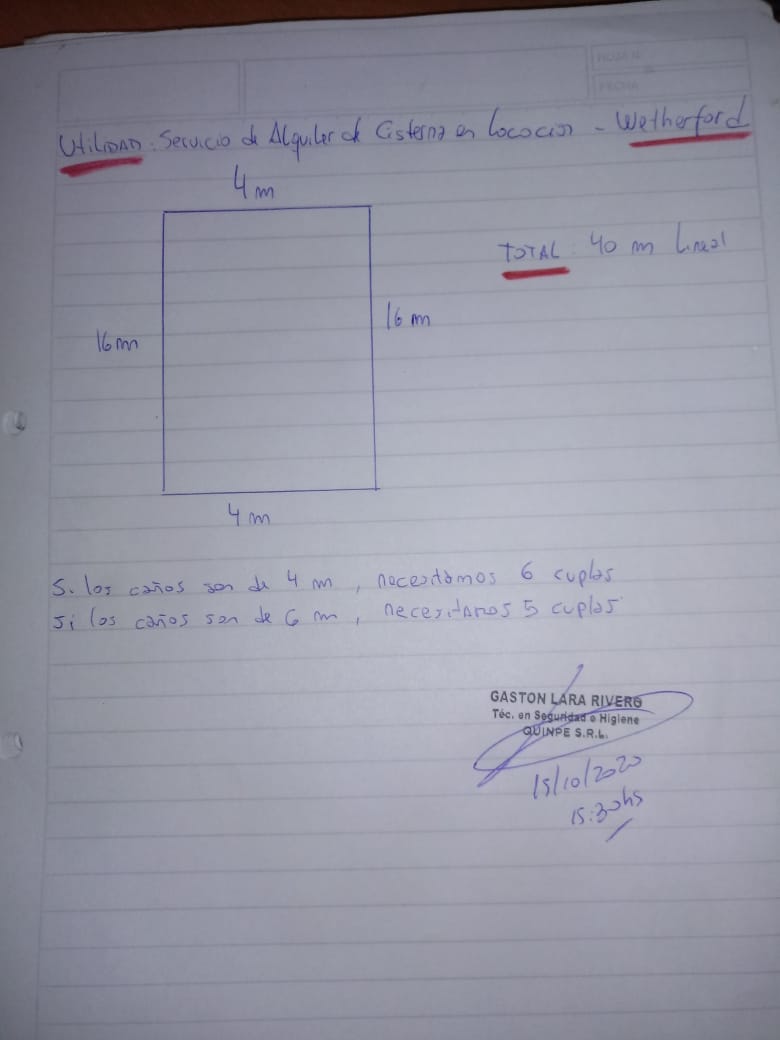 Utilidad: Servicio de Alquiler de Cisterna en Lococion - Wetherford
4 m
TOTAL: 40 m Lineal
16 m
16 m
4 m
Si los caños son de 4 m, necesitamos 6 cuplas
Si los caños son de 6 m, necesitamos 5 cuplas
GASTON LARA RIVERO
Téc. en Seguridad e Higiene
QUINPE S.R.L.
15/10/2020
15:30hs